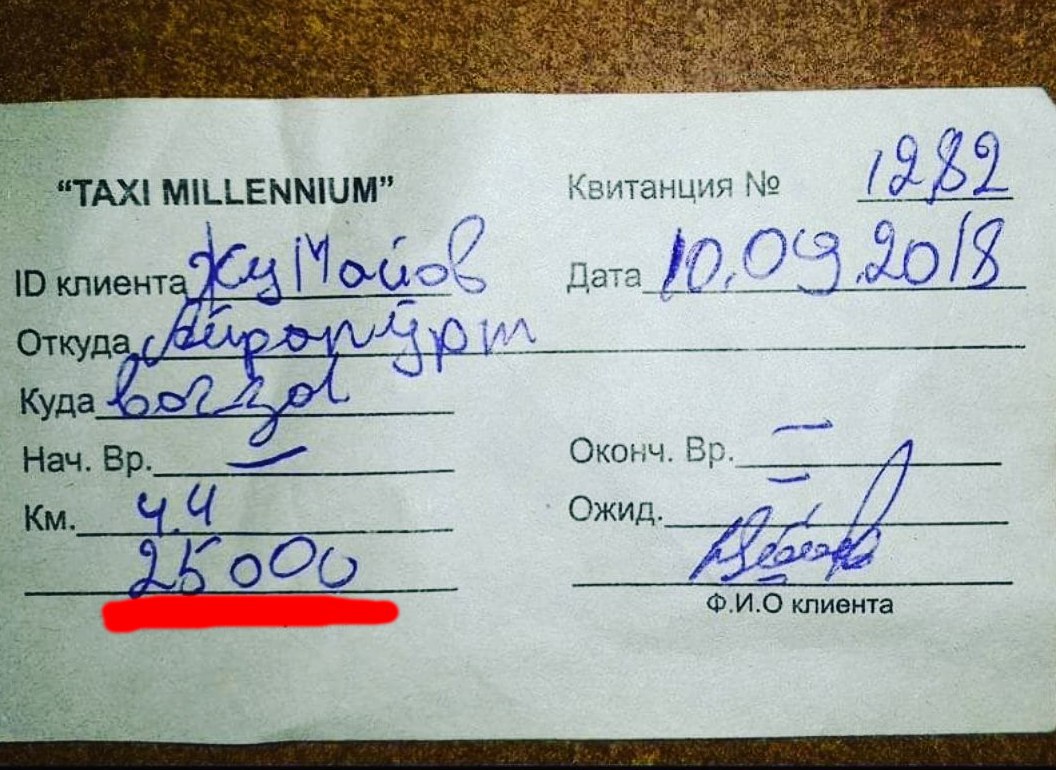 “TAXI MILLENNIUM” Квитанция № 1282
ID клиента Жумаиов Дата 10.09.2018
Откуда Айропурт
Куда вогзол
Нач. Вр. — Оконч. Вр. —
Км. 4.4 Ожид. —
25000
Ф.И.О клиента